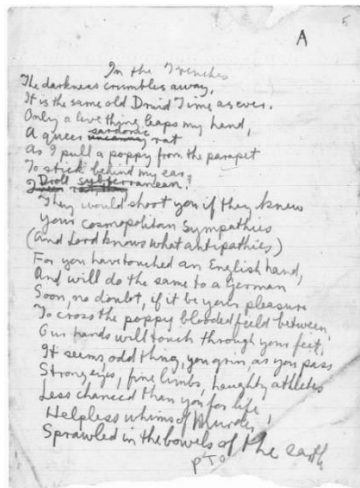 5
A
In the Trenches
The darkness crumbles away,
It is the same old Druid Time as ever.
Only a live thing leaps my hand,
A queer sardonic rat
As I pull a poppy from the parapet
To stick behind my ear,
Droll subterranean,
They would shoot you if they knew
Your cosmopolitan sympathies
(And Lord knows what antipathies)
For you have touched an English hand,
And will do the same to a German
Soon, no doubt, if it be your pleasure
To cross the poppy blooded field between,
Our hands will touch through your feet,
It seems odd thing, you grin, as you pass
Strong eyes, fine limbs, haughty athletes
Less chanced than you for life,
Helpless whims of Murder,
Sprawled in the bowels of the earth
PTO